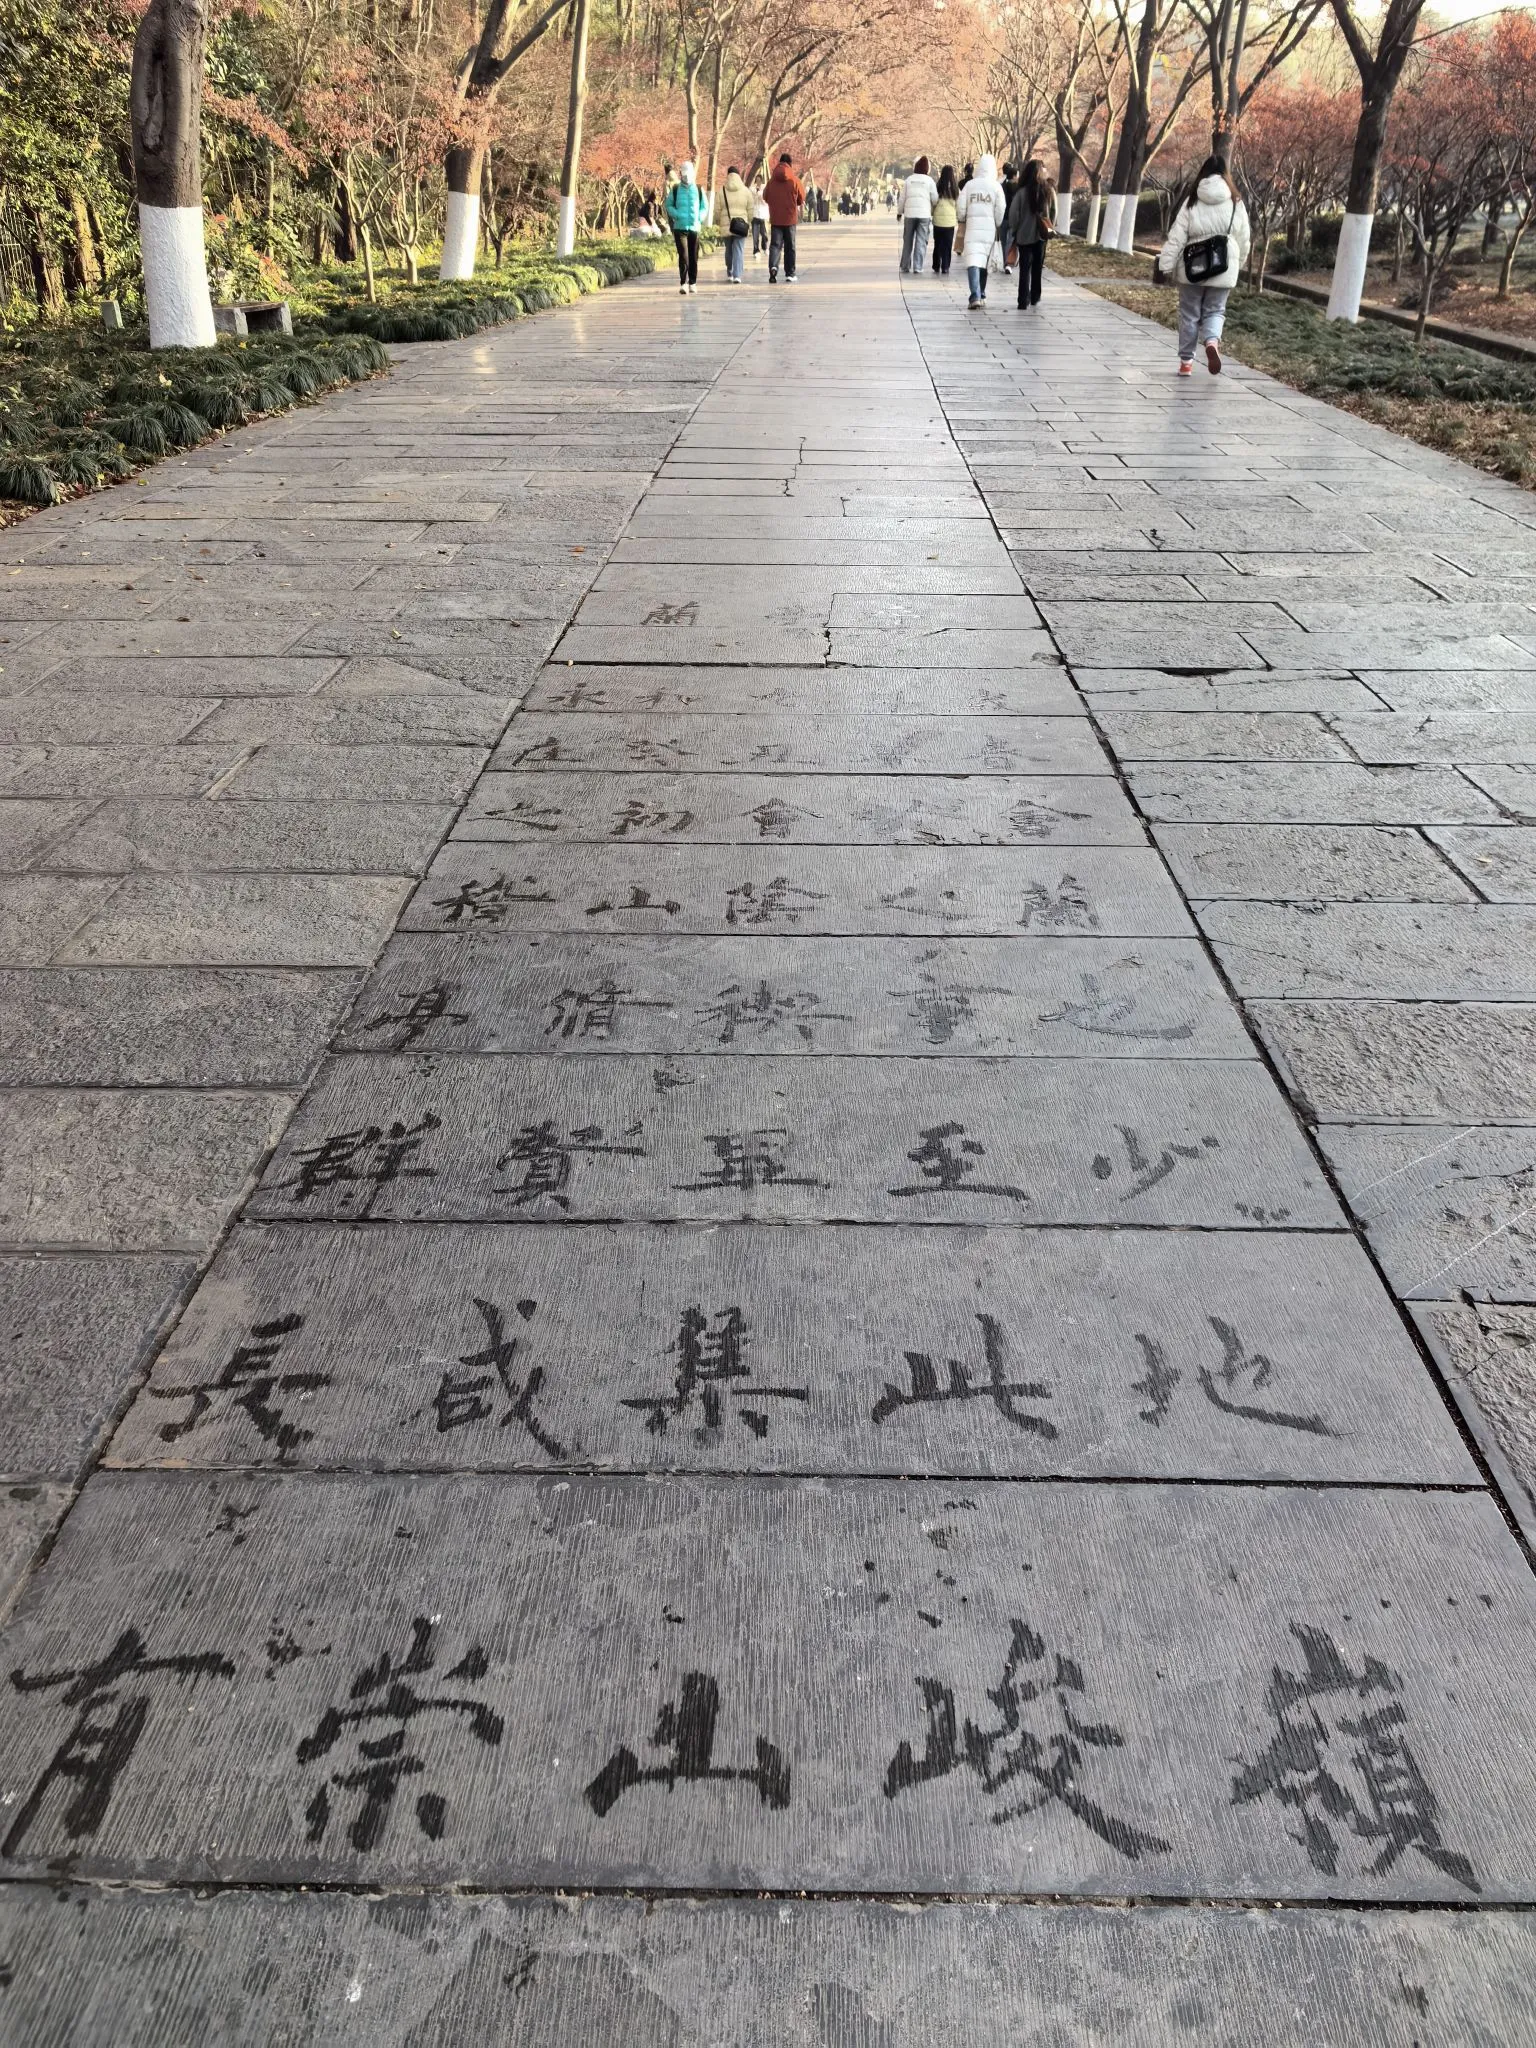 FILA
蘭
永和
在癸丑
之初會於會
稽山陰之蘭
亭脩禊事也
群賢畢至少
長咸集此地
有崇山峻嶺